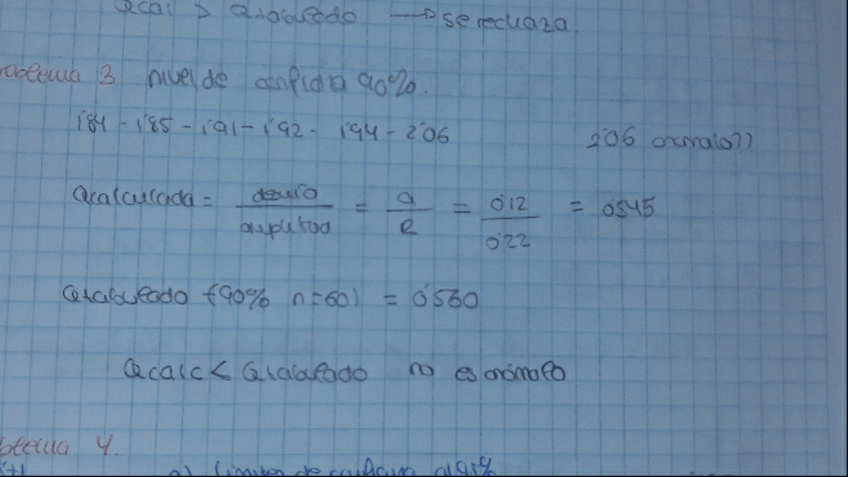 Qcal > Qtabulado → se rechaza
Problema 3 nivel de confianza 90%.
1'84 - 1'85 - 1'91 - 1'92 - 1'94 - 2'06 2'06 anómalo??
Qcalculada = desvío / amplitud = a / R = 0'12 / 0'22 = 0'545
Qtabulado (90% n=60) = 0'560
Qcalc < Qtabulado no es anómalo
Problema 4.
a) límites de confianza al 95%